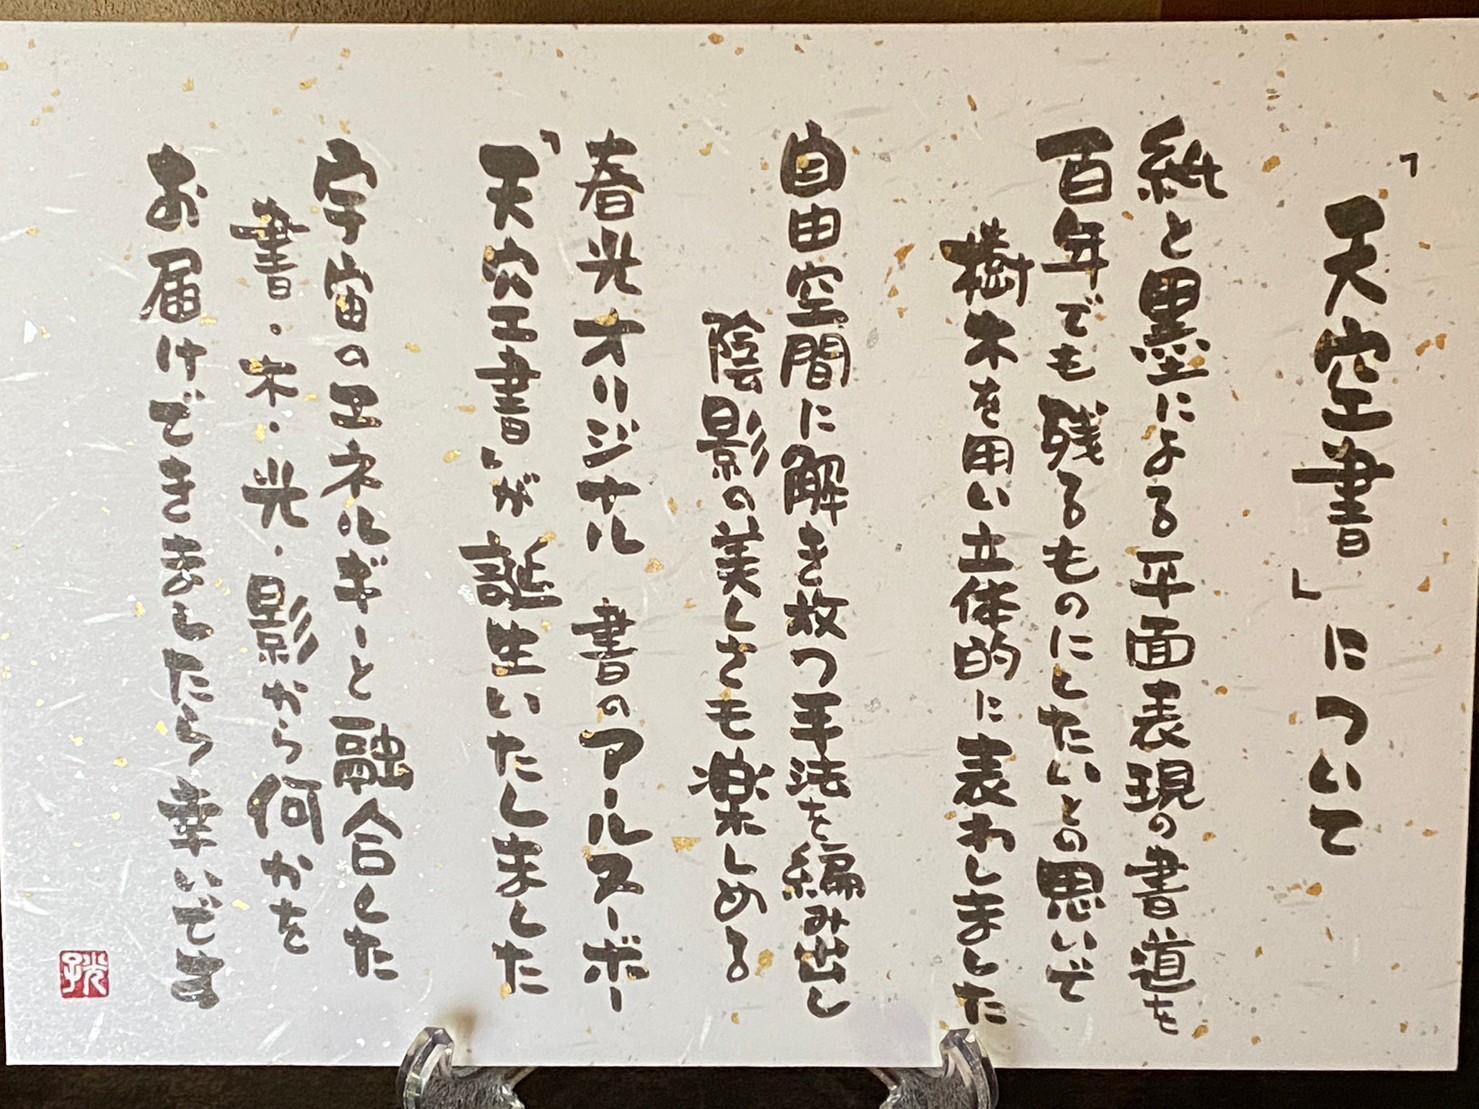 「天空書」について
紙と墨による平面表現の書道を
百年でも残るものにしたいとの思いで
樹木を用い立体的に表わしました
自由空間に解き放つ手法を編み出し
陰影の美しさも楽しめる
春光オリジナル 書のアールヌーボー
「天空書」が誕生いたしました
宇宙のエネルギーと融合した
書・木・光・影から何かを
お届けできましたら幸いです